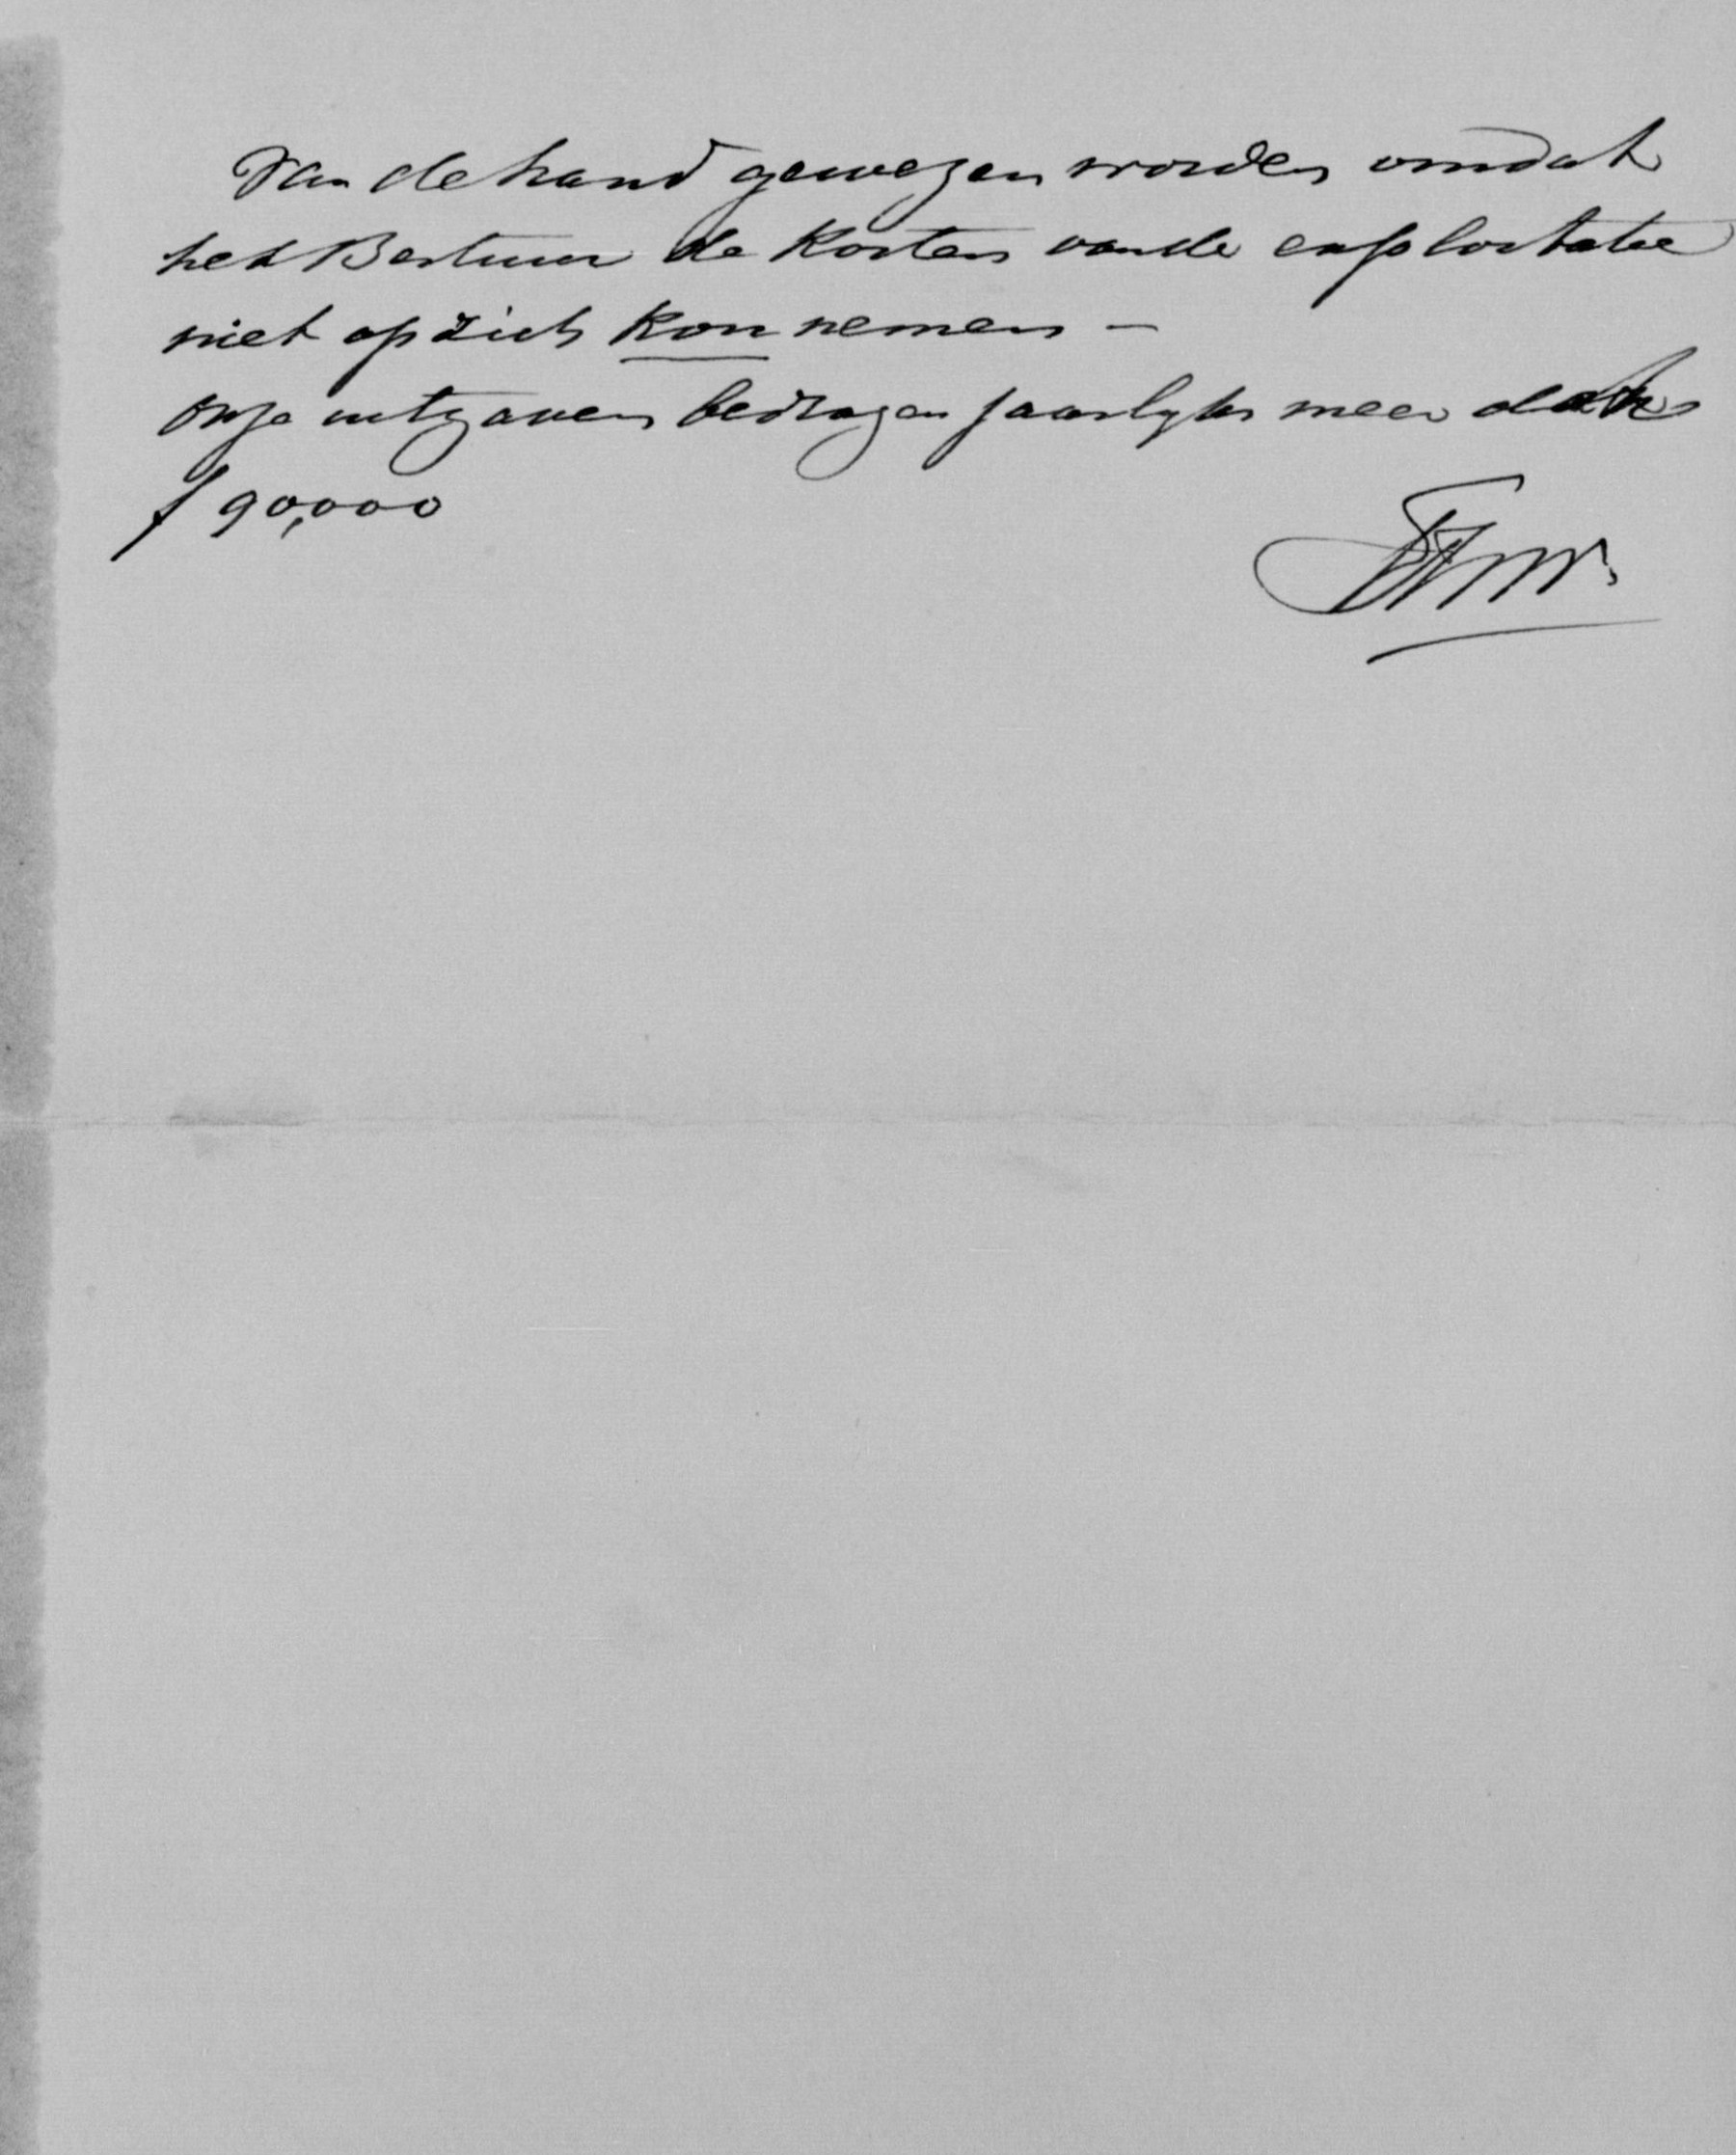 van de hand gewezen worden omdat
het Bestuur de Kosten van de exploitatie
niet op zich kon nemen –
onze uitgaven bedragen jaarlyks meer dan
f 90,000